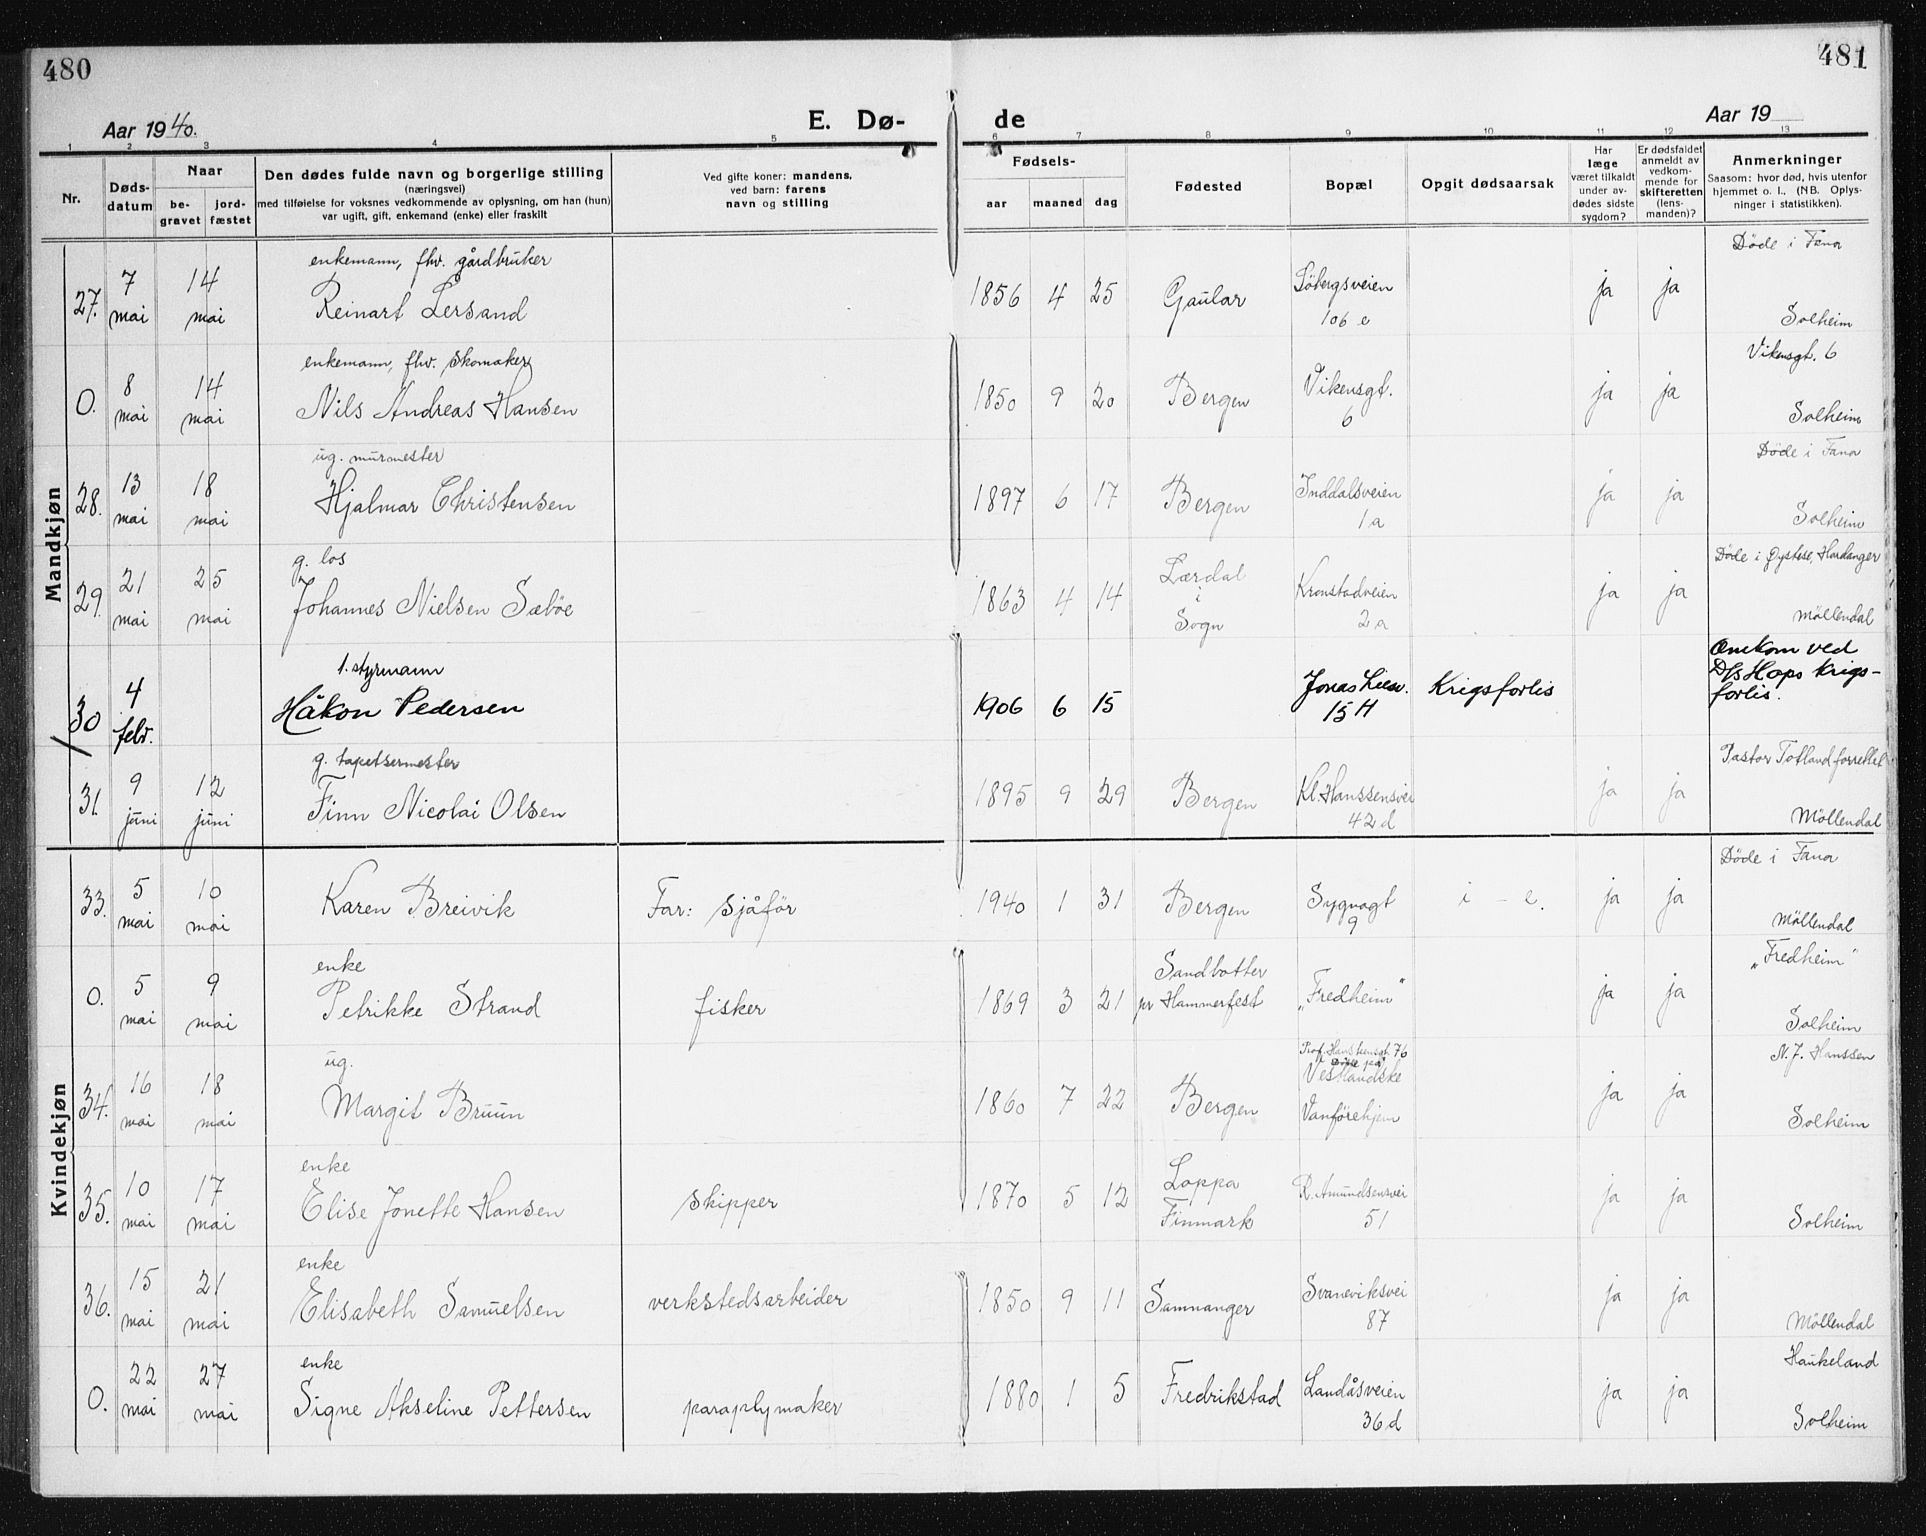 480
481
Aar 1940.
E. Dø-
de
Aar 19
1 2 3 4 5 6 7 8 9 10 11 12 13
Nr.
Døds-
datum
Naar
be-
gravet
jord-
fæstet
Den dødes fulde navn og borgerlige stilling
(næringsvei)
med tilføielse for voksnes vedkommende av oplysning, om han (hun)
var ugift, gift, enkemand (enke) eller fraskilt
Ved gifte koner: mandens,
ved barn: farens
navn og stilling
Fødsels-
aar maaned dag
Fødested
Bopæl
Opgit dødsaarsak
Har
læge
været tilkaldt
under av-
dødes sidste
sygdom?
Er dødsfaldet
anmeldt av
vedkom-
mende for
skifteretten
(lens-
manden)?
Anmerkninger
Saasom: hvor død, hvis utenfor
hjemmet o. l., (NB. Oplys-
ninger i statistikken).
Mandkjøn
27. 7 mai 14 mai
enkemann, fhv. gårdbruker
Reinart Lersand
1856 4 25 Gaular
Söbergsveien
106 e
ja ja
Döde i Fana
Solheim
0. 8 mai 14 mai
enkemann, fhv. skomaker
Nils Andreas Hansen
1850 9 20 Bergen
Vikensgt.
6
ja ja
Vikensgt. 6
Solheim
28. 13 mai 18 mai
ug. murmester
Hjalmar Christensen
1897 6 17 Bergen
Inddalsveien
1a
ja ja
Döde i Fana
Solheim
29. 21 mai 25 mai
g. los
Johannes Nielsen Sæböe
1863 4 14
Lærdal
i
Sogn
Kronstadveien
2a
ja ja
Döde i Øystese, Hardanger
Möllendal
30 4 febr.
1. styrmann
Håkon Pedersen
1906 6 15
Jonas Liesv.
15 H
Krigsforlis
Omkom ved
D/s Hops krigs-
forlis.
31. 9 juni 12 juni
g. tapetsermester
Finn Nicolai Olsen
1895 9 29 Bergen
Kl. Hanssensvei
42 d
ja ja
Pastor Totland forrettet
Möllendal
Kvindekjøn
33. 5 mai 10 mai
Karen Breivik
Far: sjåför
1940 1 31 Bergen
Sygnagt
9
i - e.
ja ja
Döde i Fana
Möllendal
0. 5 mai 9 mai
enke
Petrikke Strand
fisker
1869 3 21
Sandbotter
pr Hammerfest
„Fredheim“
ja ja
„Fredheim“
Solheim
34. 16 mai 18 mai
ug.
Margit Bruun
1860 7 22 Bergen
Prof. Hansteensgt. 76
Vestlandske
Vanförehjem
ja ja
N. J. Hanssen
Solheim
35. 10 mai 17 mai
enke
Elise Jonette Hansen
skipper
1870 5 12
Loppa
Finmark
R. Amundsensvei
51
ja ja
Solheim
36. 15 mai 21 mai
enke
Elisabeth Samuelsen
verkstedsarbeider
1850 9 11 Samnanger
Svaneviksvei
87
ja ja
Möllendal
0. 22 mai 27 mai
enke
Signe Akseline Pettersen
paraplymaker
1880 1 5 Fredrikstad
Landåsveien
36 d
ja ja
Haukeland
Solheim